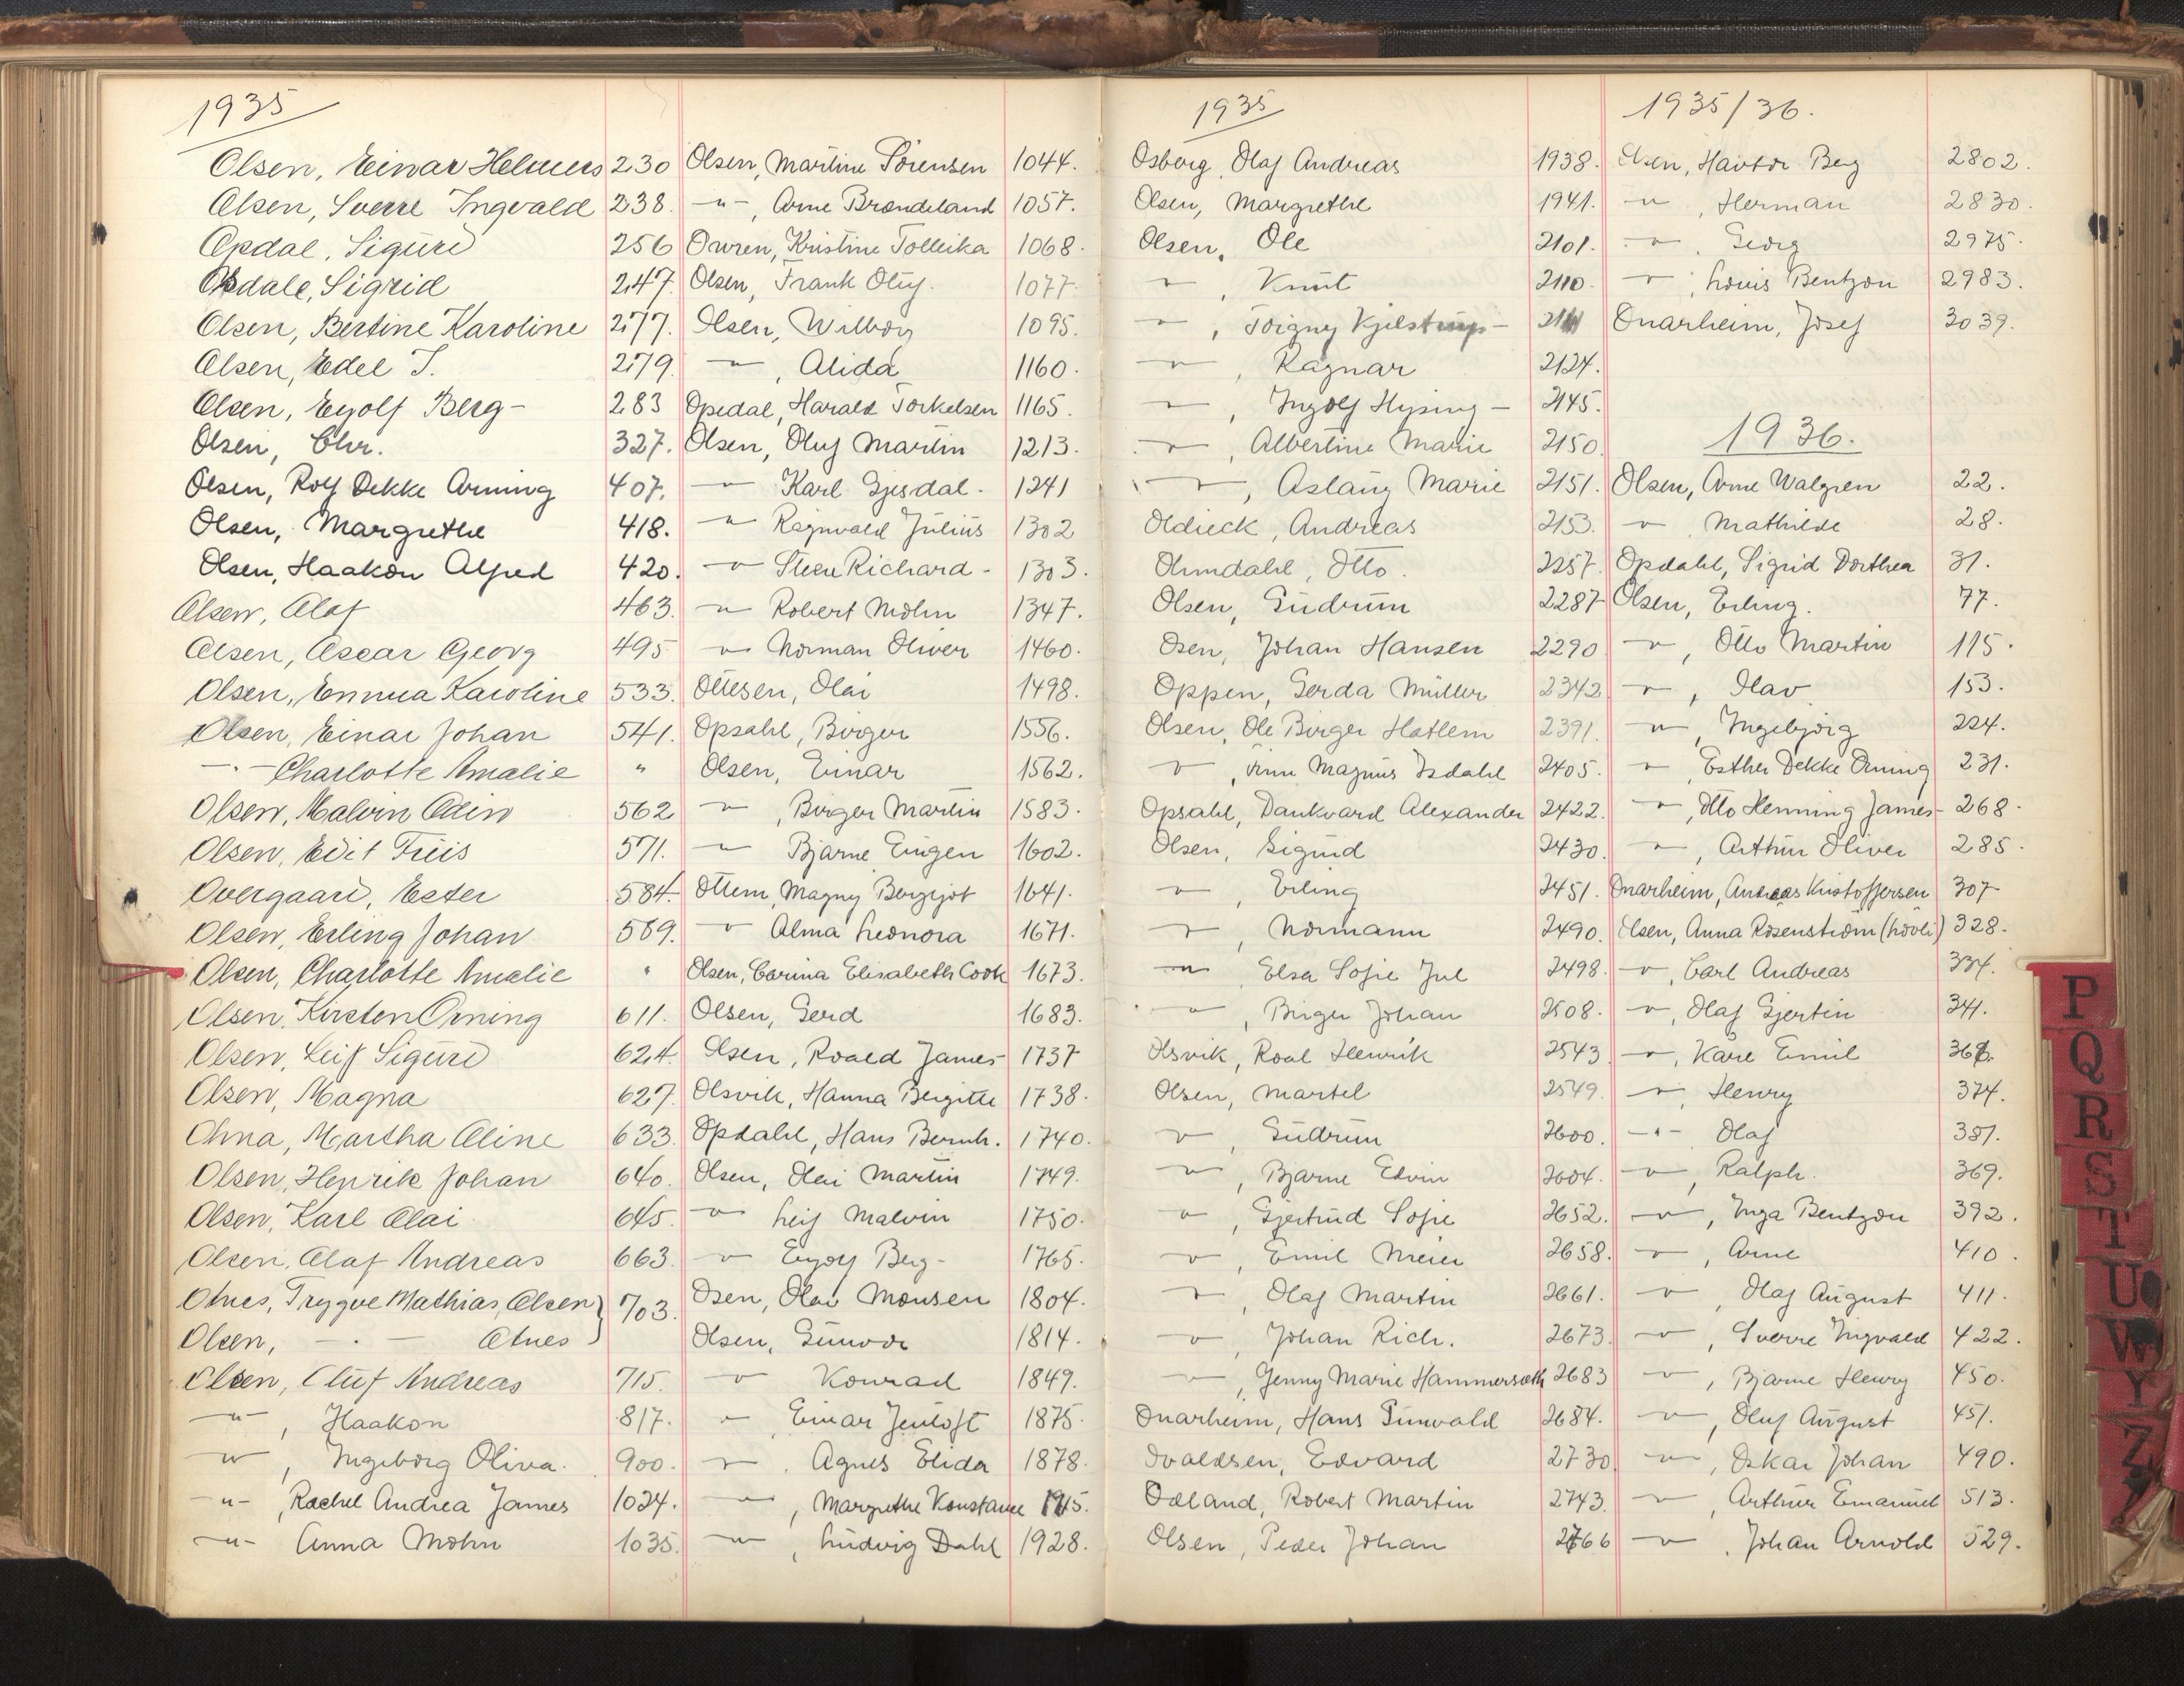 1935
Olsen, Einar Helmers 230
Olsen, Sverre Ingvald 238.
Opdal, Sigurd 256
Opdale, Sigrid 247.
Olsen, Bertine Karoline 277.
Olsen, Edel T. 279.
Olsen, Eyolf Berg- 283
Olsen, Chr. 327.
Olsen, Rolf Dekke Orning 407.
Olsen, Margrethe 418.
Olsen, Haakon Alfred 420.
Olsen, Olaf 463.
Olsen, Oscar Georg 495
Olsen, Emma Karoline 533.
Olsen, Einar Johan 541.
-"- Charlotte Amalie "
Olsen, Malvin Odin 562
Olsen, Edit Friis 571.
Overgaard, Ester 584.
Olsen, Erling Johan 589.
Olsen, Charlotte Amalie "
Olsen, Kirsten Orning 611.
Olsen, Leif Sigurd 624.
Olsen, Magna 627.
Ohna, Martha Oline 633.
Olsen, Henrik Johan 640.
Olsen, Karl Olai 645.
Olsen, Olaf Andreas 663.
Otnes, Trygve Mathias, Olsen } 703.
Olsen, - " - Otnes
Olsen, Oluf Andreas 715.
-"-, Haakon 817.
-"-, Ingeborg Oliva. 900.
-"-, Rachel Andrea James 1024.
-"- Anna Mohn 1035.
Olsen, Martine Sørensen 1044.
-"-, Arne Brandeland 1057.
Owren, Kristine Tolleika 1068.
Olsen, Frank Oluf. 1077.
Olsen, Wilbog 1095.
-"-, Alida 1160.
Opedal, Harald Torkelsen 1165.
Olsen, Oluf Martin 1213.
-"- Karl Gjesdal- 1241
-"- Ragnvald Julius 1302
-"- Steen Richard- 1303.
-"- Robert Mohn 1347.
-"- Norman Oliver 1460.
Ottesen, Olai 1498.
Opsahl, Birger 1556.
Olsen, Einar 1562.
-"-, Birger Martin 1583.
-"- Bjarne Eugen 1602.
Ottem, Magny Bergljot 1641.
-"- Alma Leonora 1671.
Olsen, Carina Elisabeth Cook 1673.
Olsen, Gerd 1683.
Olsen, Roald James- 1737
Olsvik, Hanna Bergitte 1738.
Opdahl, Hans Bernh. 1740.
Olsen, Olai Martin 1749.
-"- Leif Malvin 1750.
-"- Eyolf Berg- 1765.
Osen, Olav Monsen 1804.
Olsen, Gunvor 1814.
-"- Konrad 1849.
-"- Einar Jentoft 1875.
-"-, Agnes Elida 1878.
-"-, Margrethe Konstanse 1915.
-"-, Ludvig Dahl 1928.
1935
Osborg, Olaf Andreas 1938.
Olsen, Margrethe 1941.
Olsen, Ole 2101.
-"-, Knut 2110.
-"-, Torgny Kjelstrup- 2111
-"-, Ragnar 2124.
-"-, Ingolf Hysing- 2145.
-"-, Albertine Marie 2150.
-"-, Aslaug Marie 2151.
Oldieck, Andreas 2153.
Olmdahl, Otto. 2257.
Olsen, Gudrun 2287
Osen, Johan Hansen 2290
Oppen, Gerda Müller 2342
Olsen, Ole Birger Hatlem 2391.
-"-, Finn Magnus Isdahl 2405.
Opsahl, Dankvard Alexander 2422.
Olsen, Sigurd 2430.
-"-, Erling 2451.
-"-, Normann 2490.
-"- Elsa Sofie Jul 2498.
-"-, Birger Johan 2508.
Olsvik, Roal Henrik 2543
Olsen, Martel 2549.
-"-, Gudrun 2600.
-"-, Bjarne Edvin 2604.
-"-, Gjertrud Sofie 2652.
-"-, Emil Meier 2658.
-"-, Olaf Martin 2661.
-"-, Johan Rich. 2673.
-"-, Jenny Marie Hammersøth 2683
Onarheim, Hans Gunvald 2684.
Ovaldsen, Edvard 2730.
Odland, Robert Martin 2743.
Olsen, Peder Johan 2766
1935/36.
Olsen, Havtor Berg 2802.
-"-, Herman 2830.
-"-, Georg 2975.
-"-, Louis Bentzon 2983.
Onarheim, Josef 3039.
1936.
Olsen, Arne Walgren 22.
-"- Mathilde 28.
Opdahl, Sigrid Dorthea 31.
Olsen, Erling. 77.
-"-, Otto Martin 115.
-"-, Olav 153.
-"-, Ingebjørg 224.
-"-, Esther Dekke Orning 231.
-"-, Otto Henning James- 268.
-"-, Arthur Oliver 285.
Onarheim, Andreas Kristoffersen 307
Olsen, Anna Rosenstrøm (Løvli) 328.
-"-, Carl Andreas 334.
-"-, Olaf Gjertin 341.
-"-, Kåre Emil 366.
-"-, Henry 374.
-"- Olaf 381.
-"-, Ralph. 369.
-"-, Inga Bentzon 392.
-"-, Arne 410.
-"-, Olaf August 411.
-"-, Sverre Ingvald 422.
-"-, Bjarne Henry 450.
-"-, Oluf August 451.
-"-, Oskar Johan 490.
-"-, Arthur Emanuel 513.
-"-, Johan Arnold 529.
P
Q
R
S
T
U
W
Y
Z